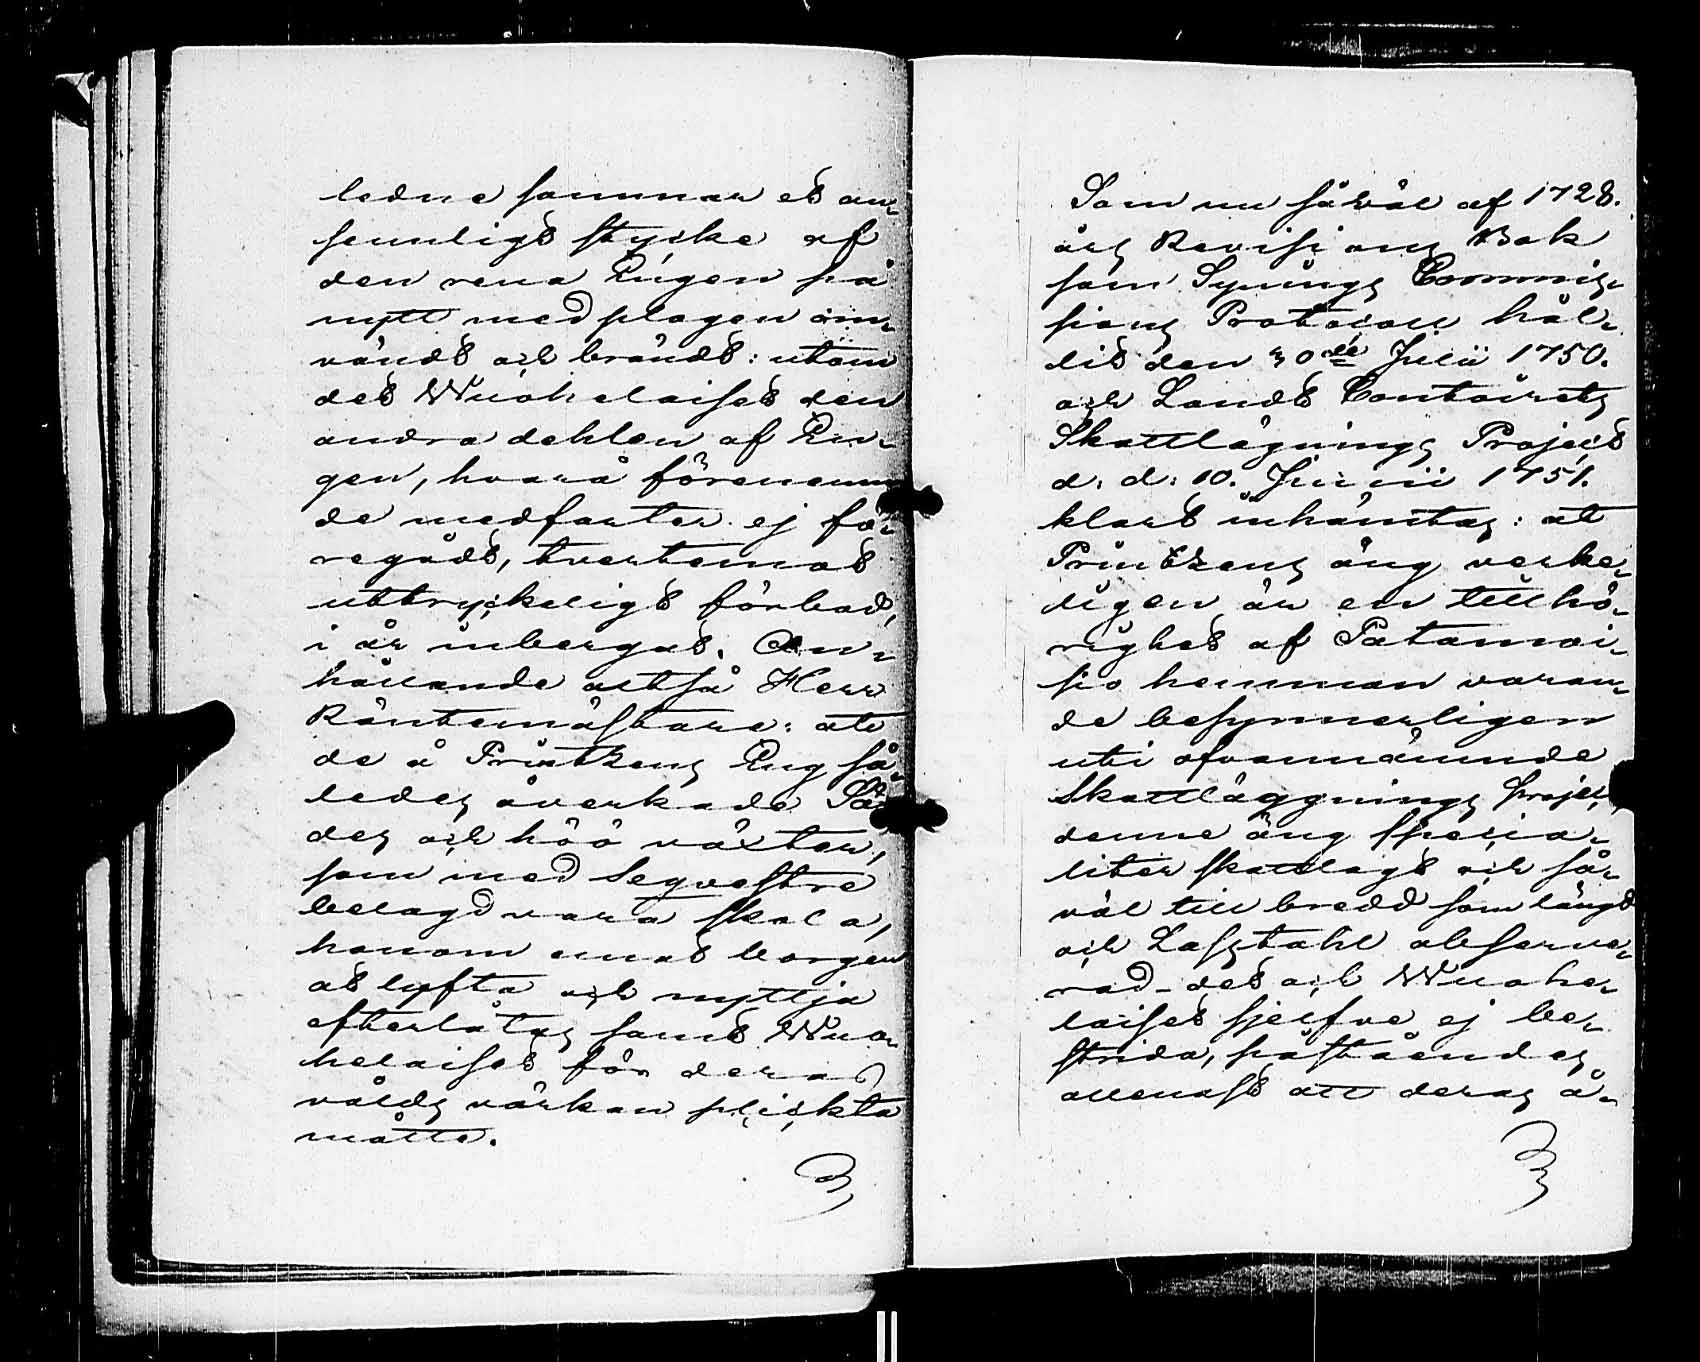 ledne sommar et an-
senligt stycke af
den rena Engen på
nytt med plogen om-
vändt och brändt: utom
det Wuohelaiset den
andra dehlen af En-
gen, hvarå förenemn
de medfarter ej fö-
regådt, tvertemot
uttryckeligt förbud,
i år inbergat. An-
hållande altså Herr
Räntemästare: att
de å Printzens Eng få-
ledes åverkade Sä-
des och höö växter,
som med Seqvestre
belagd vara skola,
honom emot borgen
at lyfta och nyttja
efterlåtas samt Wuo-
helaiset för deras
vålds värkan plickta
måtte.
Som nu såväl af 1728.
års Revisions Bok
som Synings Commis-
sions Protocoll hål-
lit den 30de Julii 1750.
och Landt Contoirets
Skattlägnings Project
d. d: 10. Junii 1751.
klart inhämtas: at
Printzens äng verke-
ligen är en tillhö-
righet af Patamoi-
sio hemman varan-
de besynnerligen
uti ofvannämnde
Skattläggnings project,
denne äng specia-
liter skattlagt och så-
väl till bredd som längd
och Lasstahl observe-
rad - det och Wuohe-
laiset sjelfve ej be-
strida, påståendes
allenast att deras å-